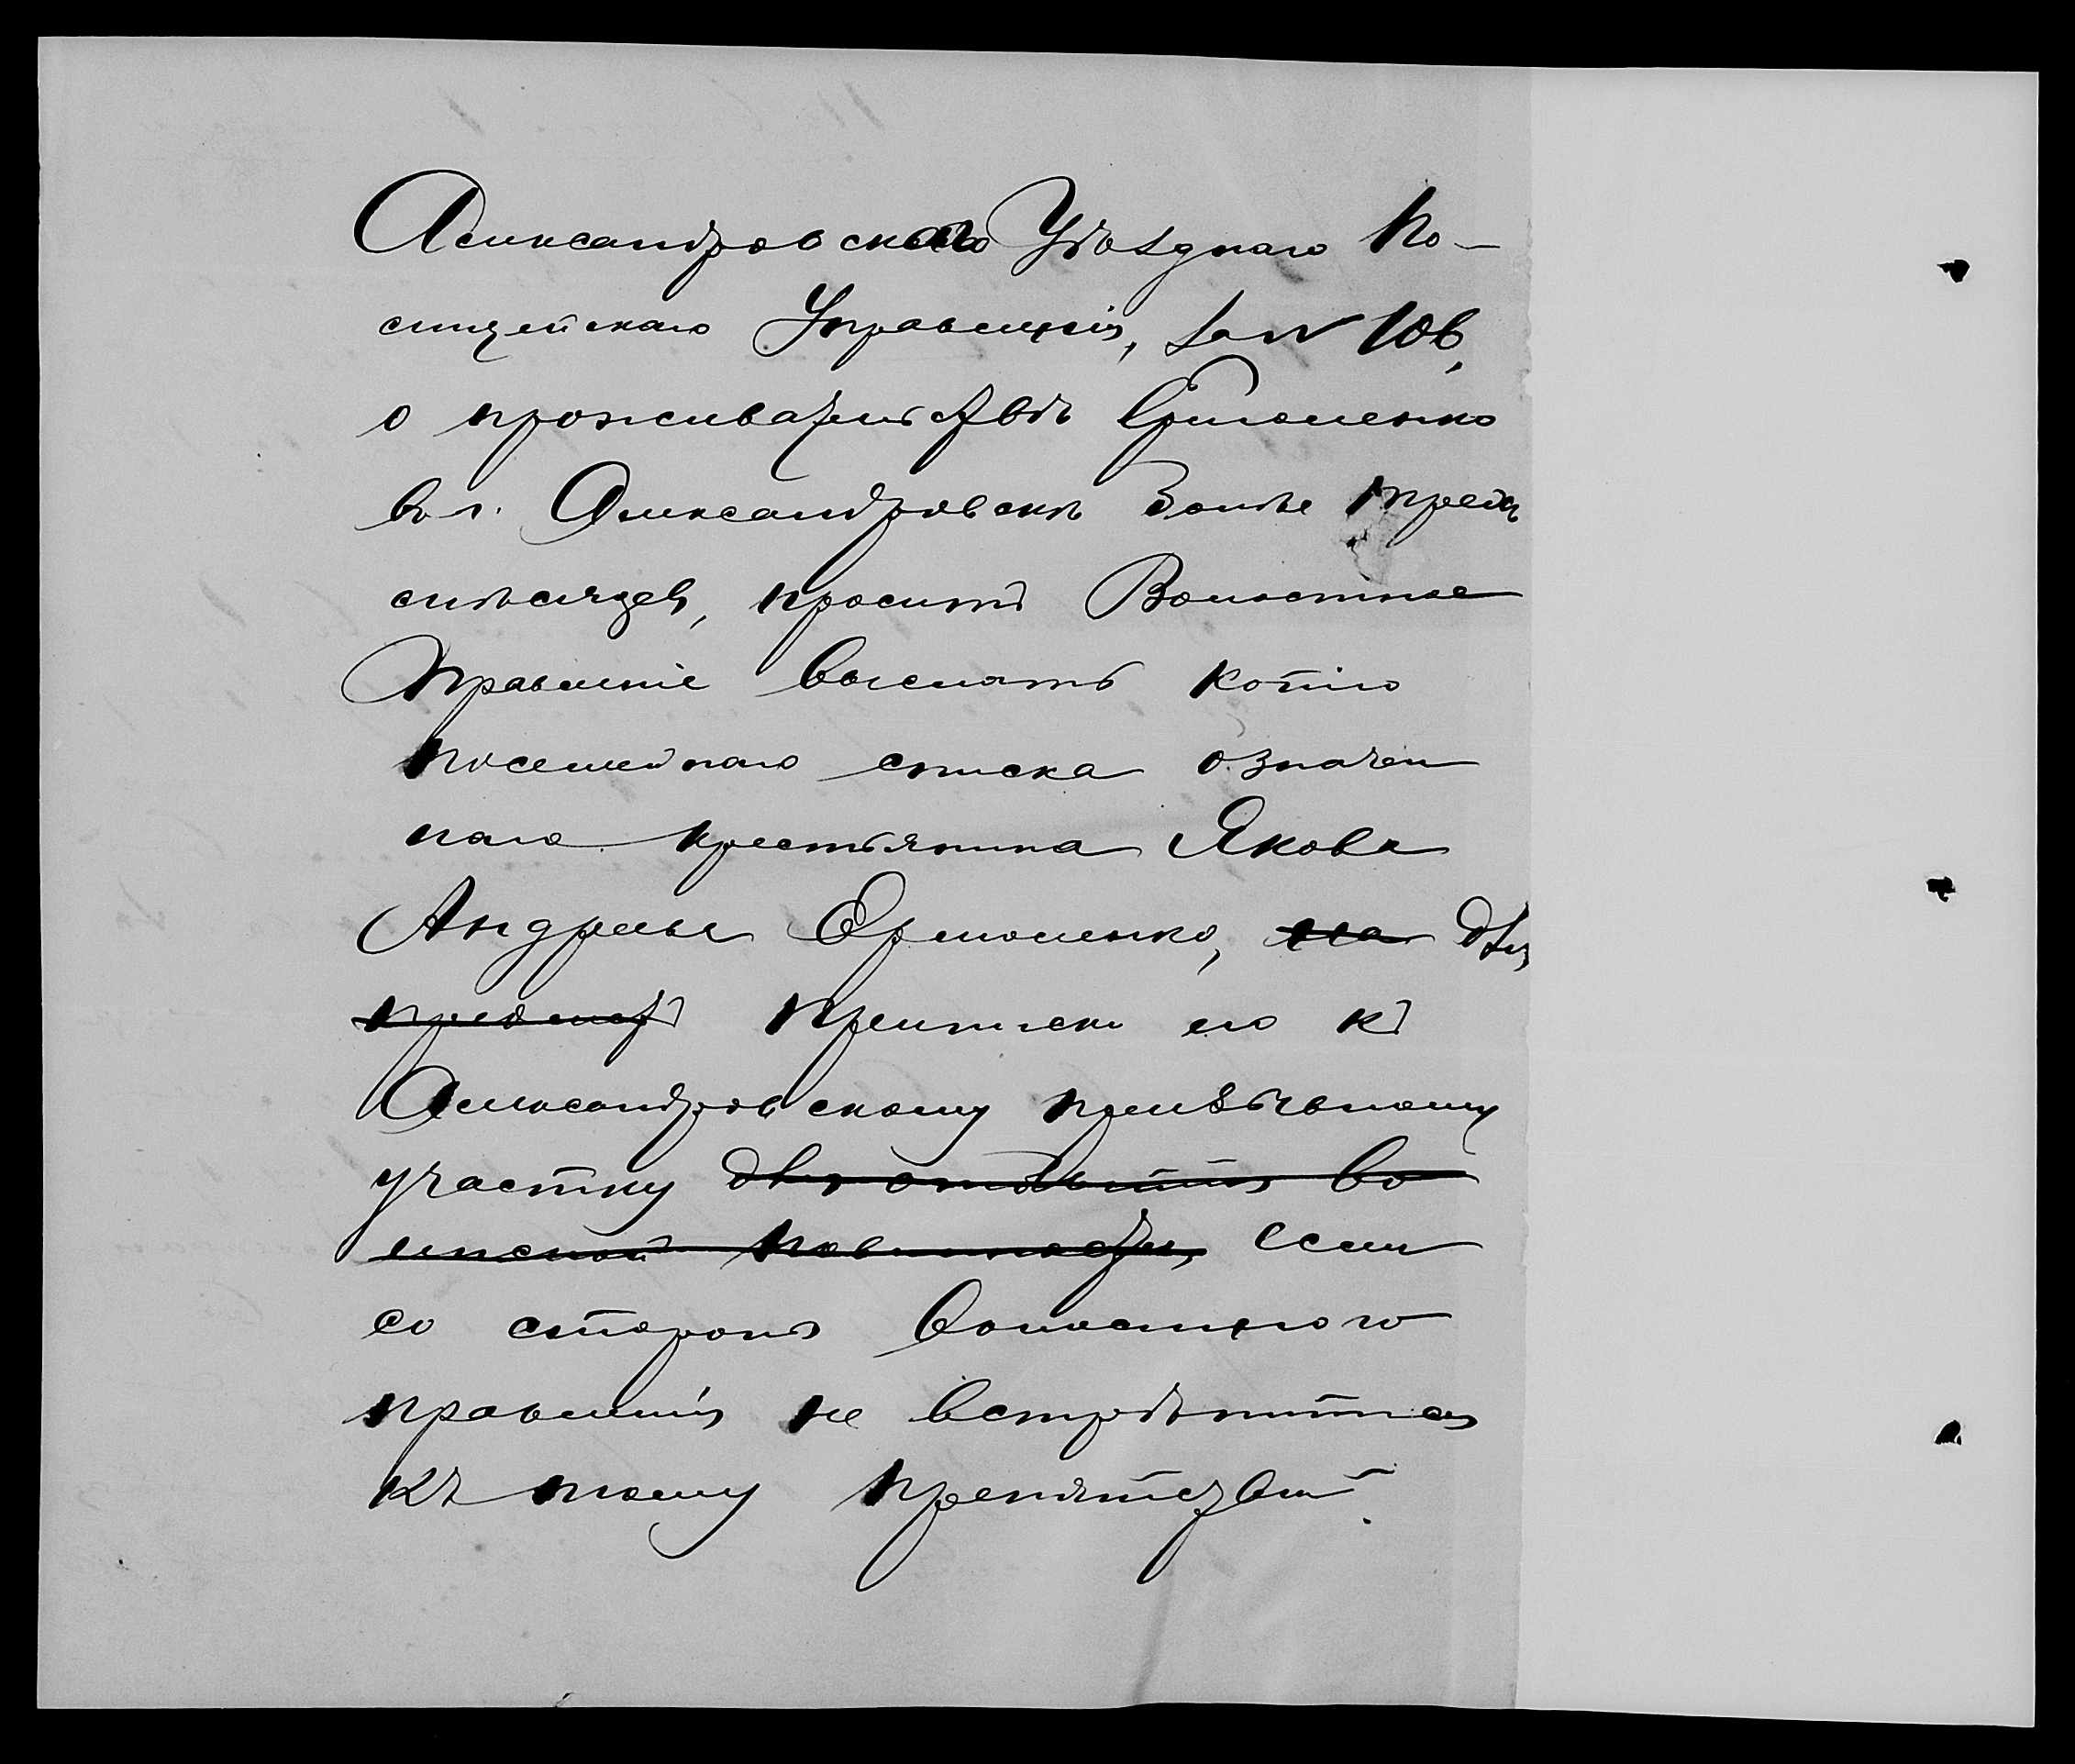 Александровскаго Уѣзднаго По-
лицейскаго Управленія, за № 106,
о прожива­тельствѣ Ермоленко
въ г. Александровскѣ болѣе трехъ
мѣсяцев, проситъ Волостное
Правленіе выслать копію
посемейнаго списка означен
наго крестьянина Якова
Андреева Ермоленко, на для
предмет приписки его къ
Александровскому призывному
участку для отбытія во
инской повинности, если
со стороны Волостного
правленія не встрѣтится
къ тому препятствій.